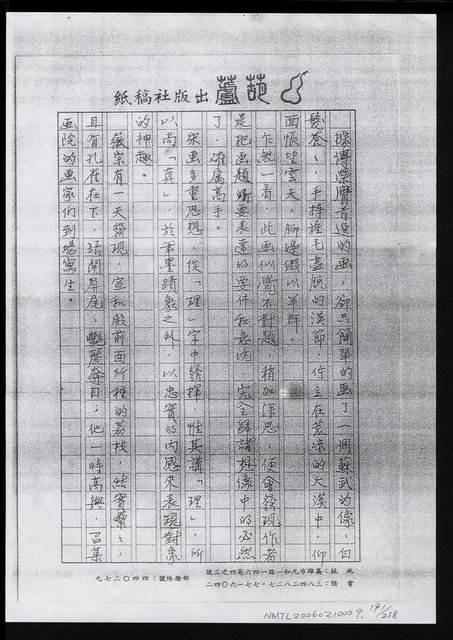 葫蘆出版社稿紙
據傳榮膺首選的画，卻只簡單的画了一個蘇武的像，白
髮蒼蒼，手持旄毛盡脫的漢節，佇立在荒涼的大漠中，仰
面悵望雲天，腳邊綴以羊群。
乍然一看，此画似寬不對題，稍加深思，便會發現作者
是把画題所要表達的要件和意境，完全歸諸想像中的必然
了，確屬高手。
宋画多重思想，從「理」字中發揮，惟其講「理」，所
以尚「真」，於筆墨蹟象之外，以忠實的內感來表現對象
的神趣。
徽宗有一天發現，宣和殿前面所種的荔枝，結實纍纍，
且有孔雀在下，張開屏尾，艷麗奪目，他一時高興，召集
画院的画家們到場寫生。
地址：高雄市九和一路一四六巷四之三號
電話：三八四二八二七・七七一六〇四二
郵撥帳號：四四〇二七九
NMTL20060210009
191/218